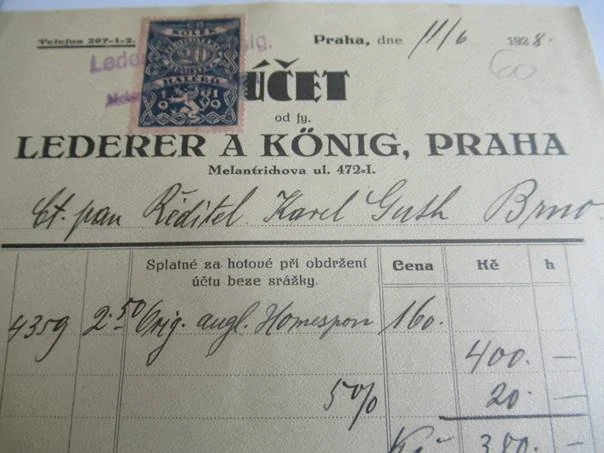 Telefon 267-1-2.
KOLEK
20
HALÉŘŮ
Praha, dne 11/6 1928.
60
ÚČET
od fy.
LEDERER A KÖNIG, PRAHA
Melantrichova ul. 472-I.
Ct. pan Ředitel Karel Guth Brno.
Splatné za hotové při obdržení Cena Kč h
účtu beze srážky.
4359 2.50 Orig. angl. Homespon 160.
400. —
5% 20. —
Kč 380. —